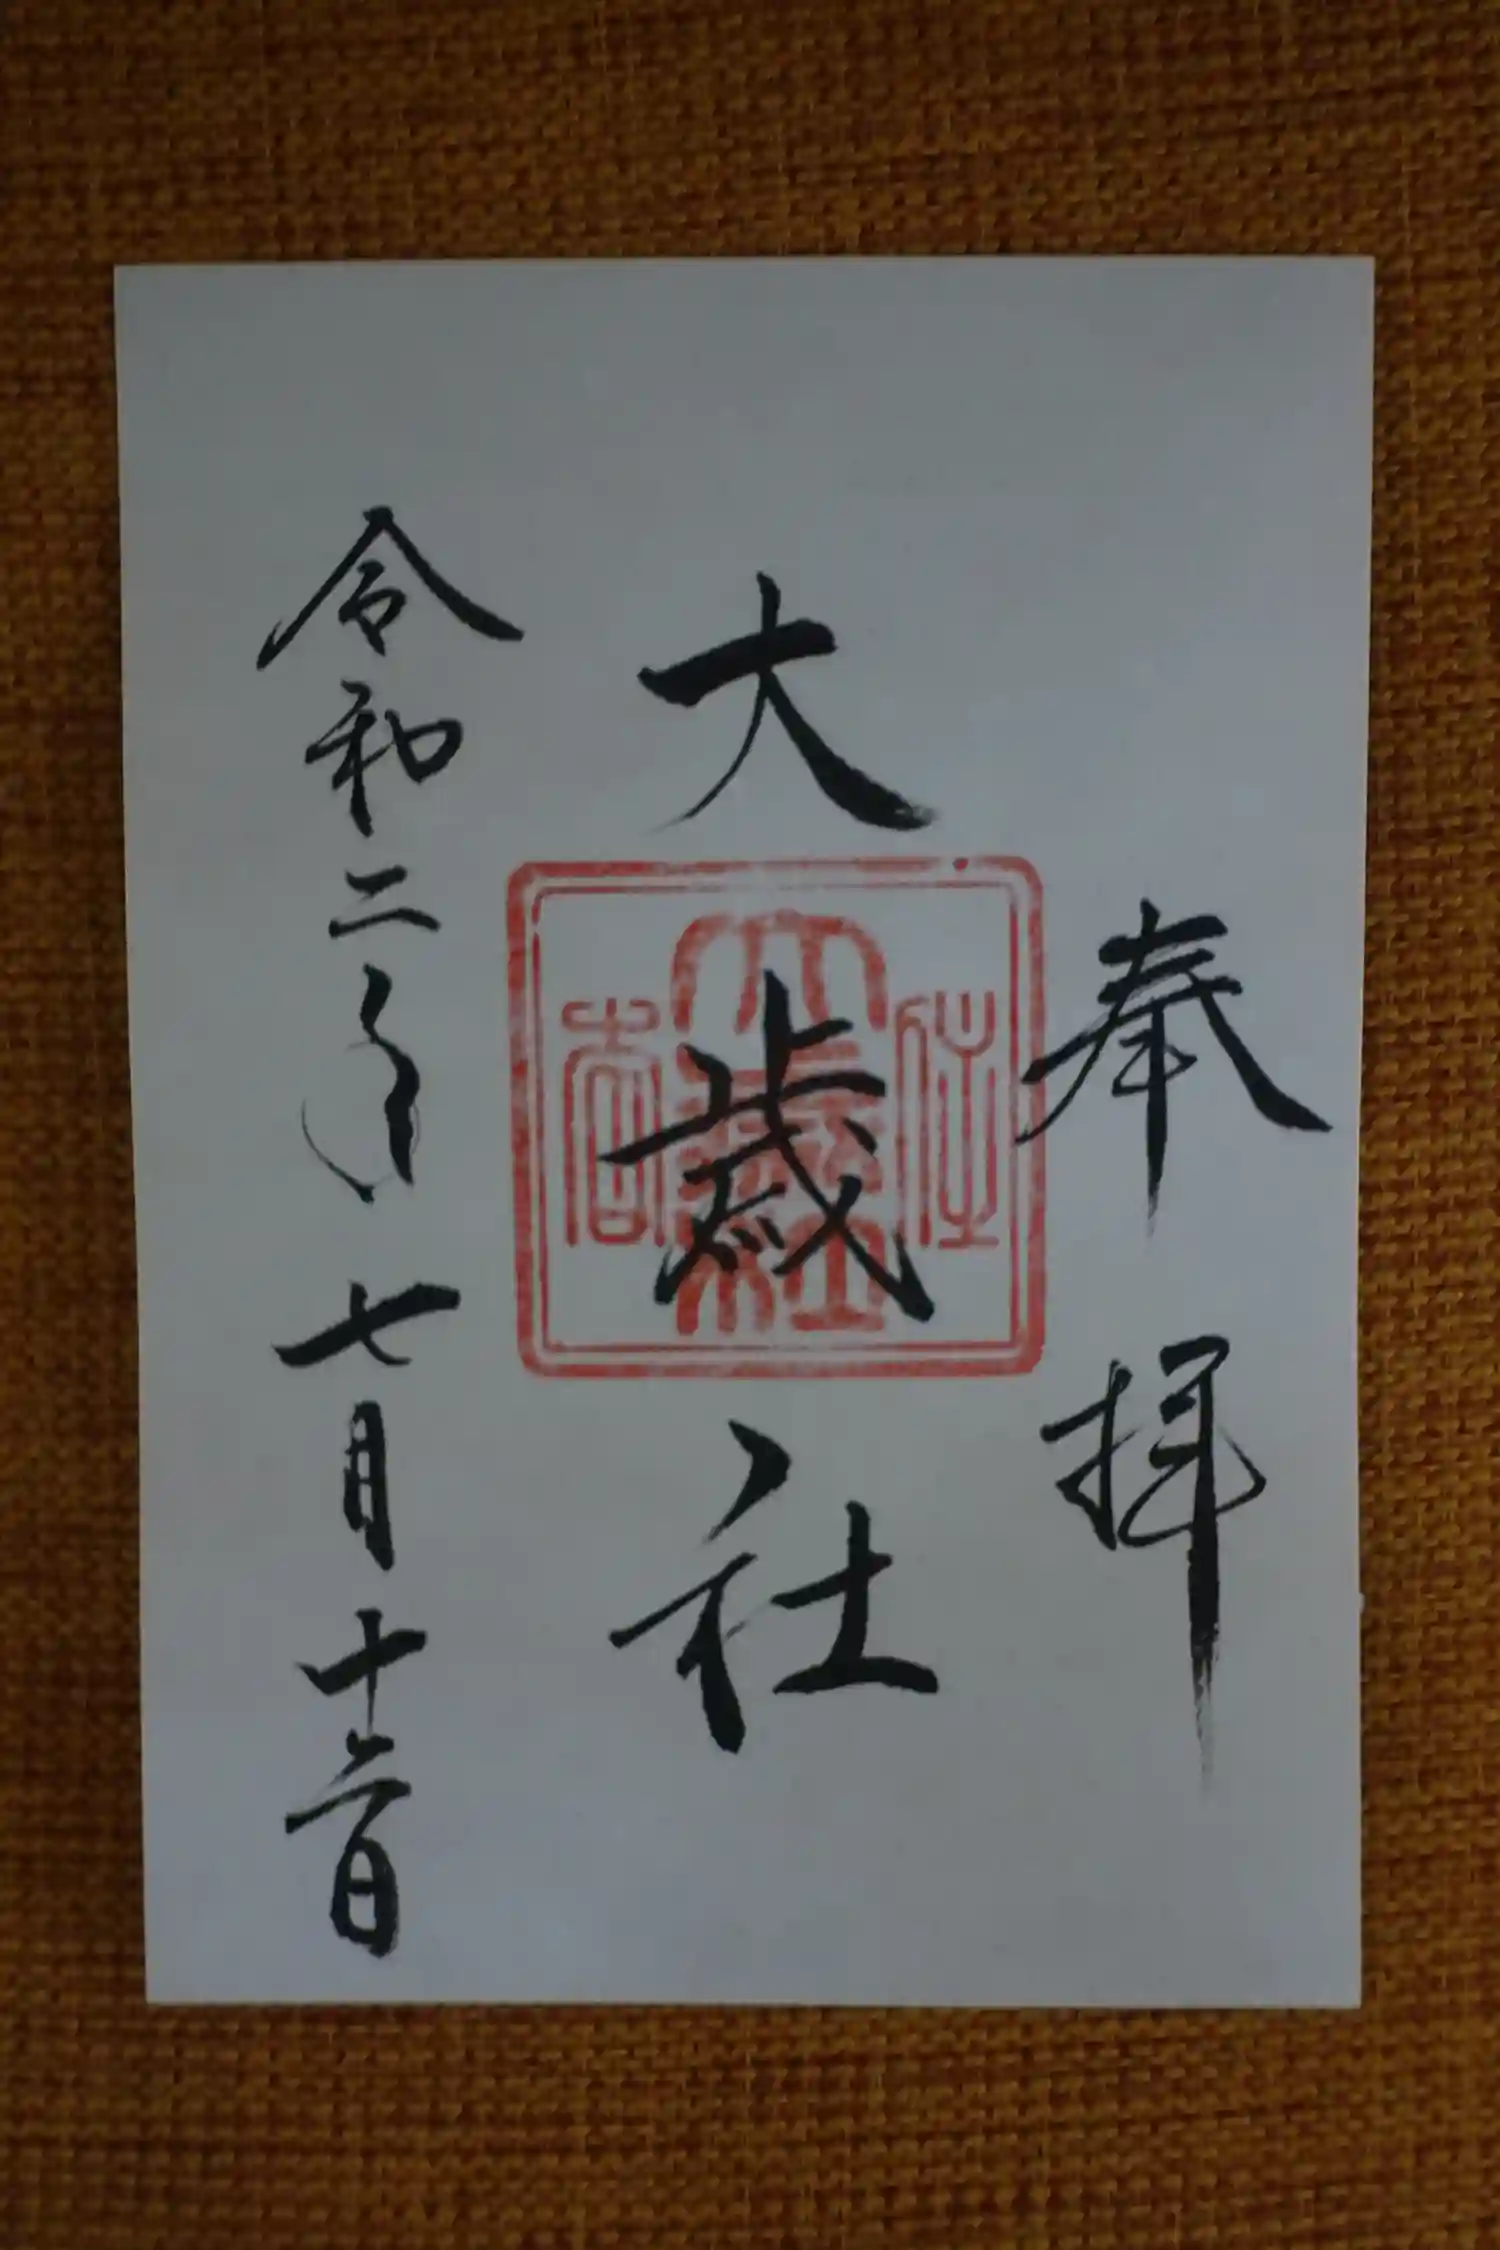 奉拝
大歳社
住吉
大歳社
令和二年七月十六日